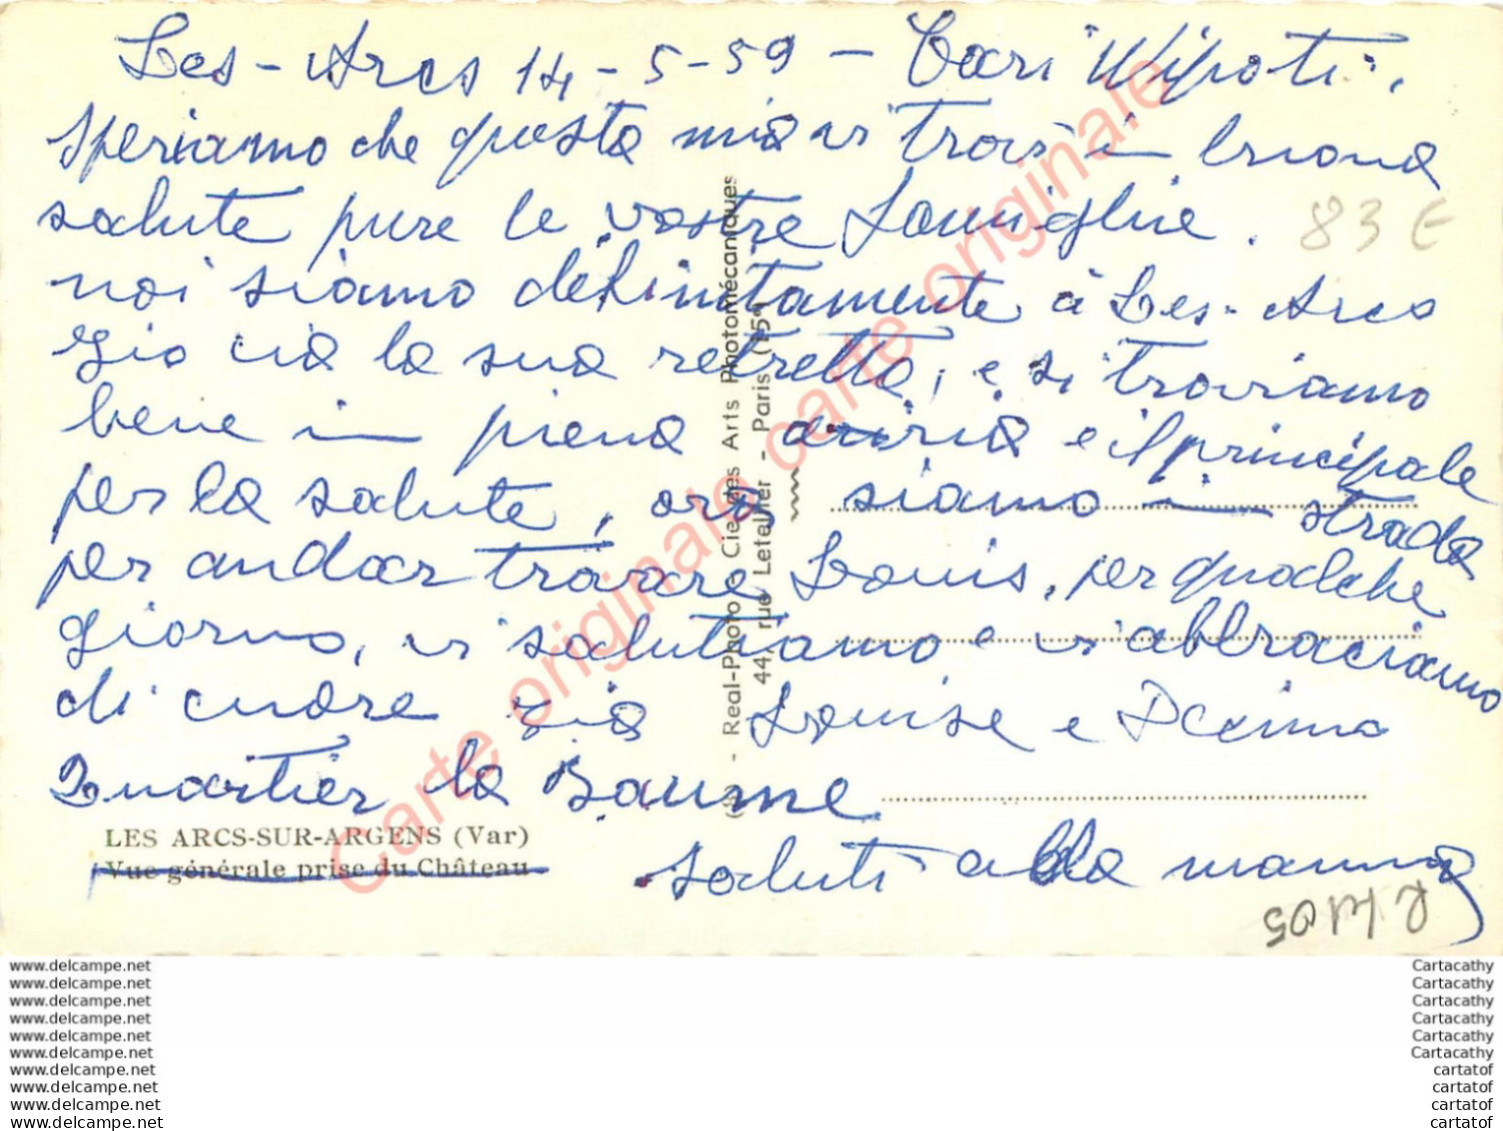 Les-Arcs 14-5-59 - Cari Nipoti.
Speriamo che questa mia vi trovi in buona
salute pure le vostre famiglie.
noi siamo definitamente à Les-Arcs
zio già la sua retretta, e si troviamo
bene in piena aria e il principale
per la salute, ora siamo in strada
per andar trovare Louis, per qualche
giorno, vi salutiamo e vi abbracciamo
di cuore zia Louise e
Quartier la Baume
saluti alla mamma
83 €
LES ARCS-SUR-ARGENS (Var)
Vue générale prise du Château
- Real-Photo Cie des Arts Photomécaniques
44, rue Letellier - Paris (15e)
Carte originale carte originale carte originale
www.delcampe.net
www.delcampe.net
www.delcampe.net
www.delcampe.net
www.delcampe.net
www.delcampe.net
www.delcampe.net
www.delcampe.net
www.delcampe.net
www.delcampe.net
Cartacathy
Cartacathy
Cartacathy
Cartacathy
Cartacathy
Cartacathy
cartatof
cartatof
cartatof
cartatof